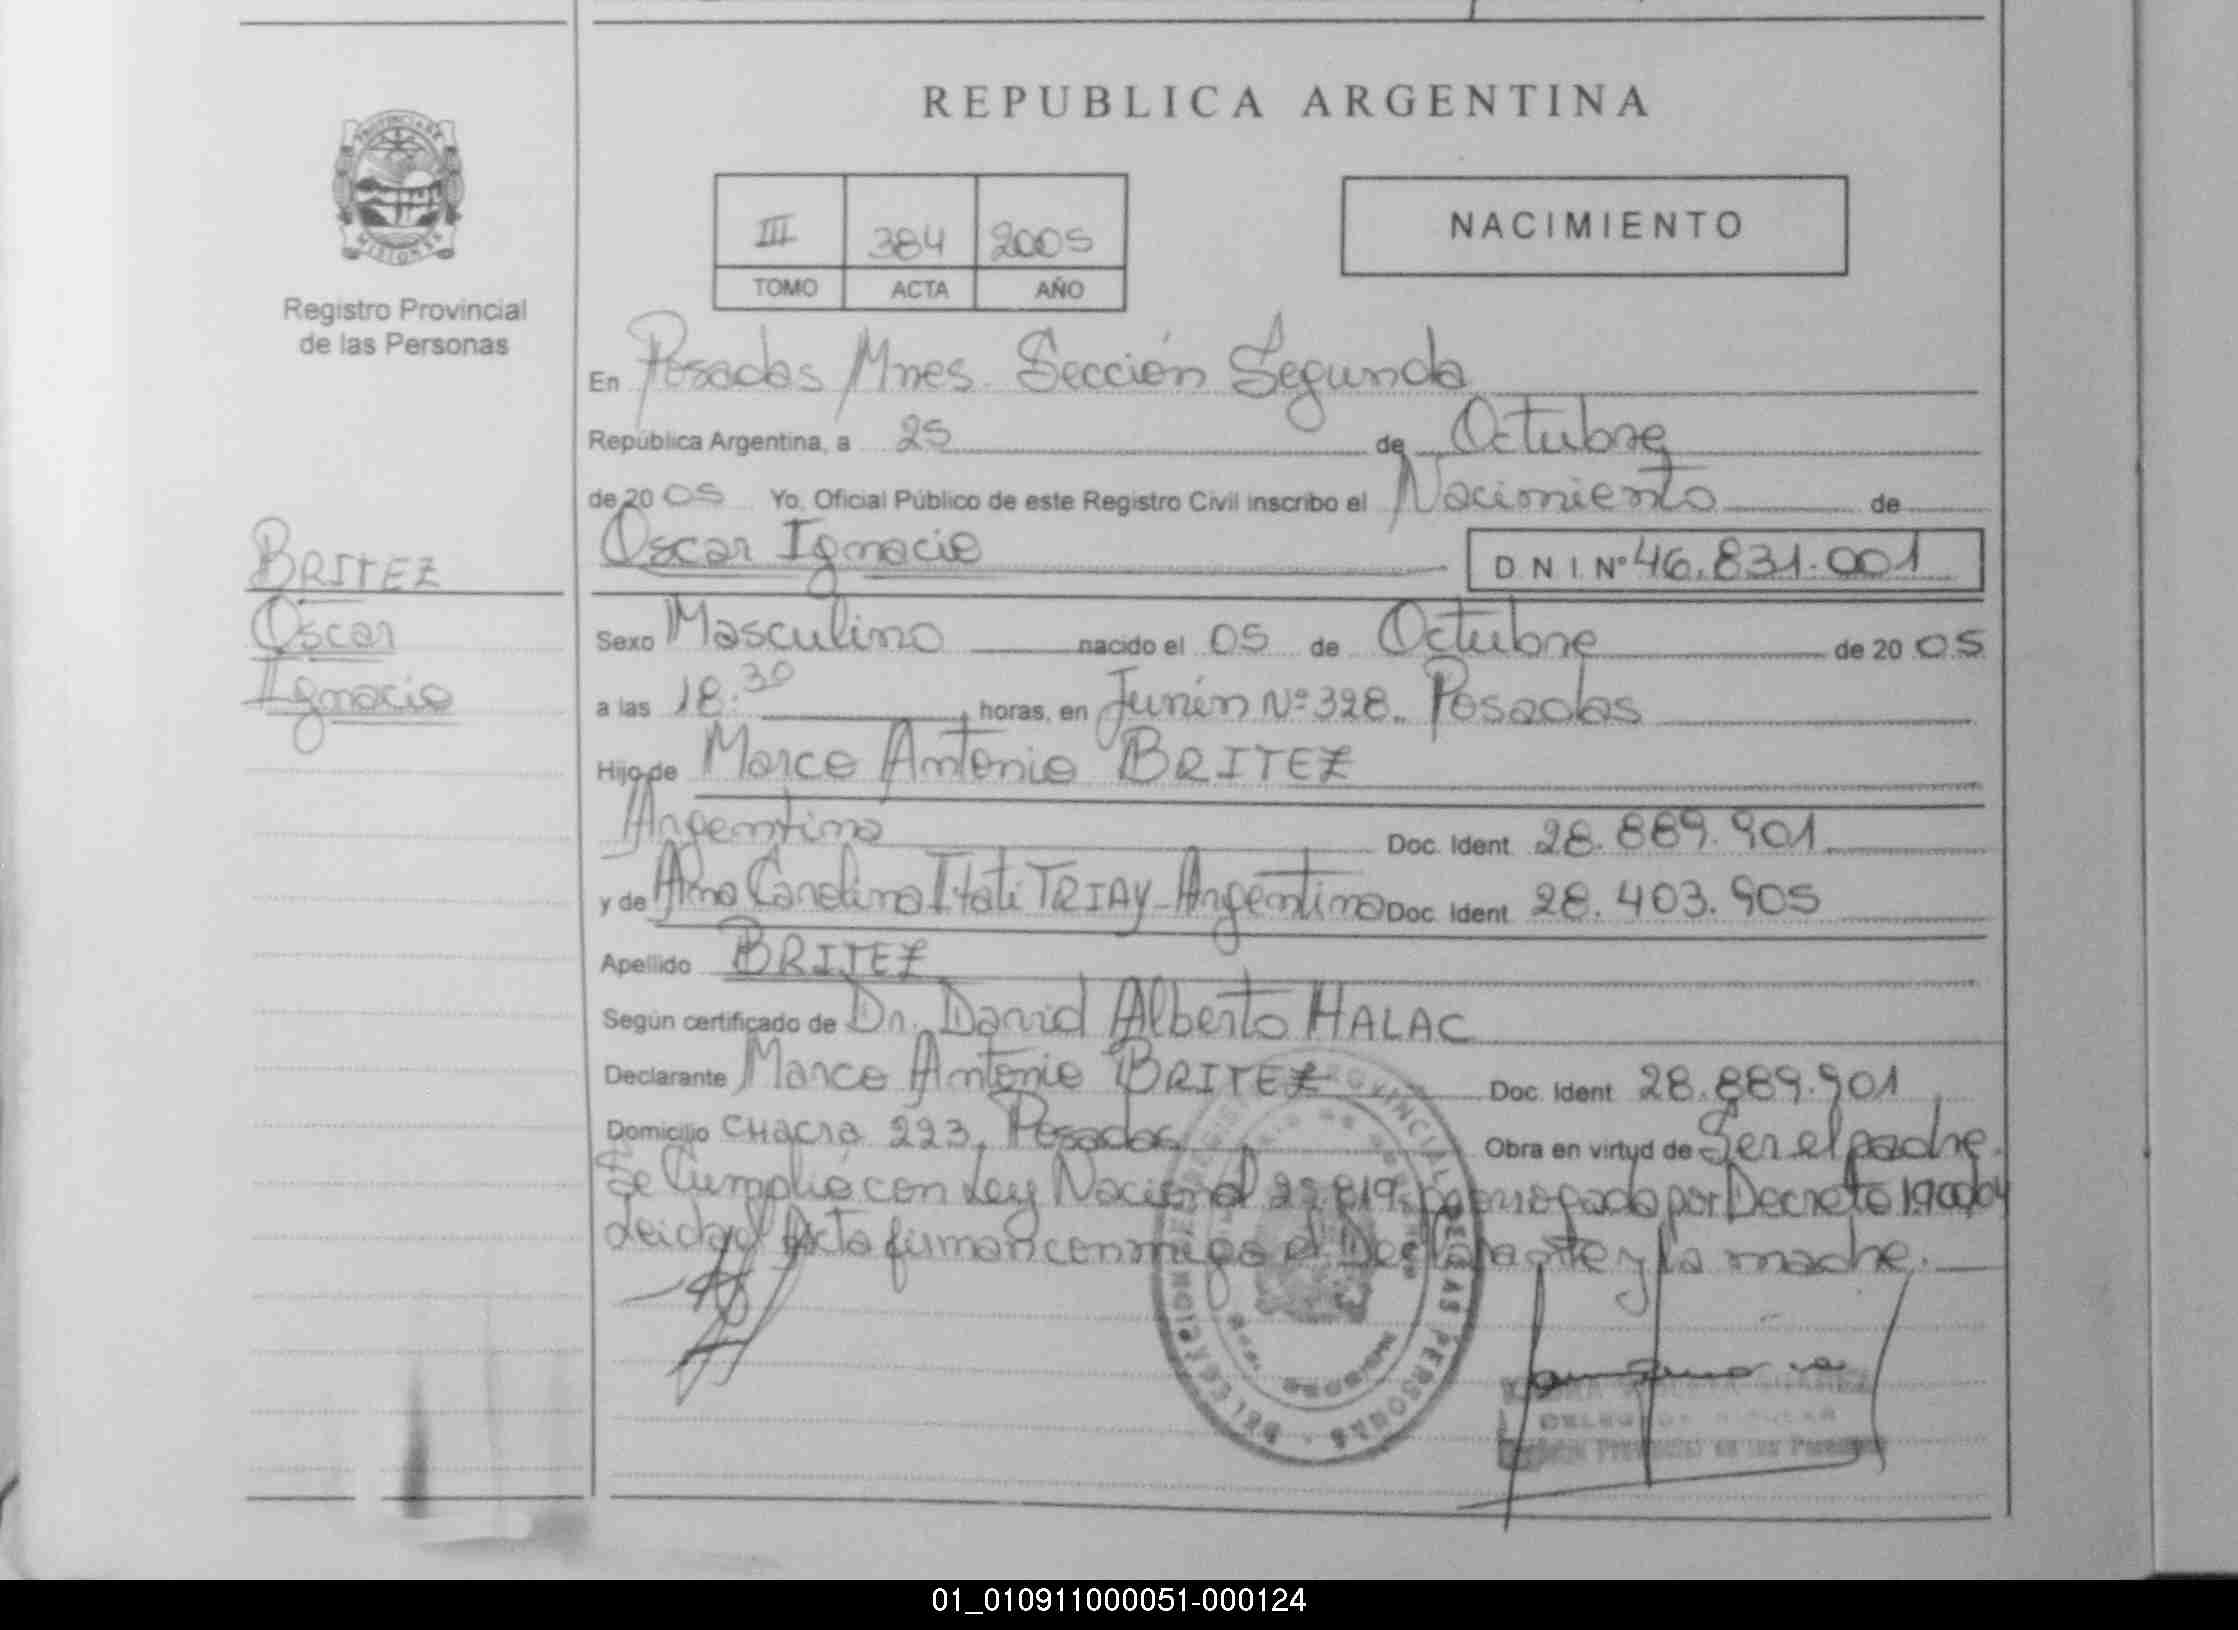 REPUBLICA ARGENTINA
PROVINCIA DE
MISIONES
Registro Provincial
de las Personas
III 384 2005
TOMO ACTA AÑO
NACIMIENTO
En Posadas Mnes. Sección Segunda
República Argentina, a 25 de Octubre
de 2005 Yo, Oficial Público de este Registro Civil inscribo el Nacimiento de
Oscar Ignacio D N I. Nº 46.831.001
BRITEZ
Oscar
Ignacio
Sexo Masculino nacido el 05 de Octubre de 2005
a las 18:30 horas, en Junín Nº 328. Posadas
Hijo de Marco Antonio BRITEZ
Argentino Doc. Ident. 28.889.901
y de Ana Carolina Itati TRIAY - Argentina Doc. Ident. 28.403.905
Apellido BRITEZ
Según certificado de Dr. David Alberto HALAC
Declarante Marco Antonio BRITEZ Doc. Ident. 28.889.901
Domicilio CHacra 223, Posadas Obra en virtud de Ser el padre.
Se Cumplió con Ley Nacional por Decreto
Leida el Acta firman conmigo el Declarante y la madre.
PROVINCIAL DE LAS PERSONAS
01_010911000051-000124